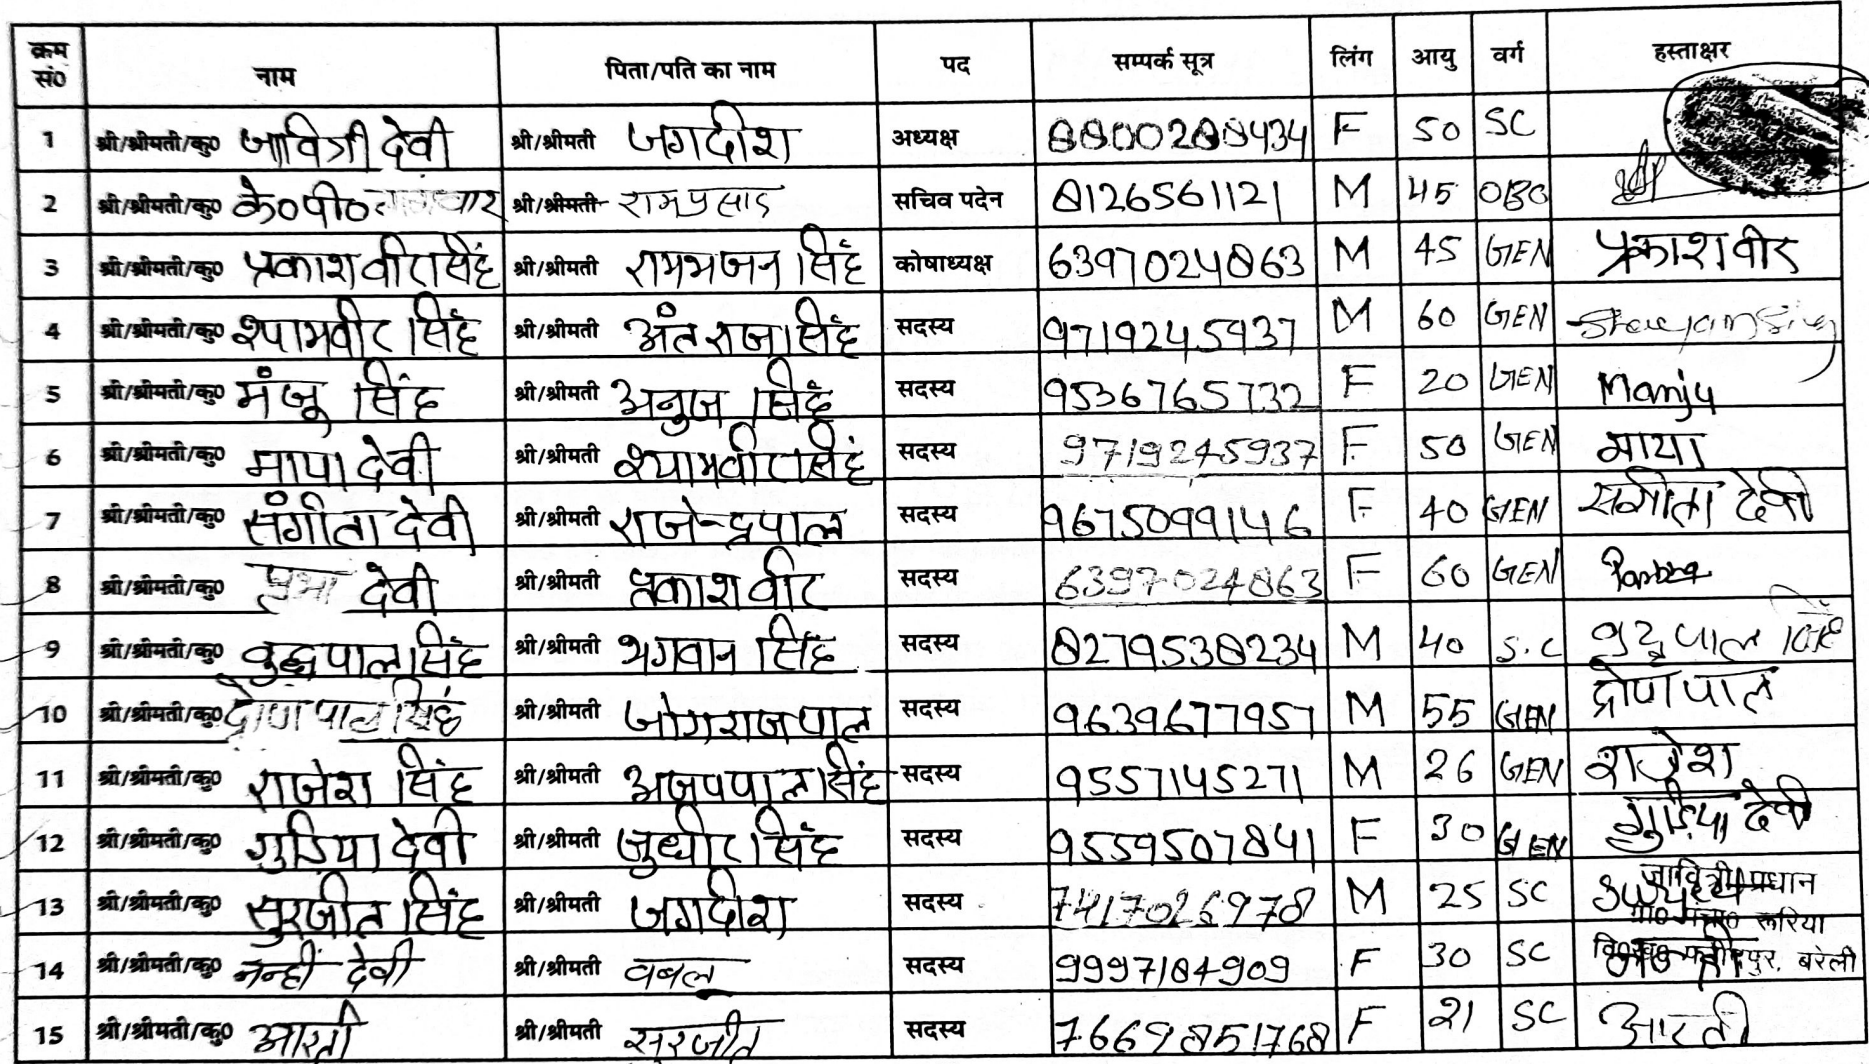 क्रम सं0 नाम पिता/पति का नाम पद सम्पर्क सूत्र लिंग आयु वर्ग हस्ताक्षर
1 श्री/श्रीमती/कु0 जावित्री देवी श्री/श्रीमती जगदीश अध्यक्ष 8800288434 F 50 SC
2 श्री/श्रीमती/कु0 के०पी० गंगवार श्री/श्रीमती रामप्रसाद सचिव पदेन 8126561121 M 45 OBC
3 श्री/श्रीमती/कु0 प्रकाशवीर सिंह श्री/श्रीमती रामभजन सिंह कोषाध्यक्ष 6397024863 M 45 GEN प्रकाशवीर
4 श्री/श्रीमती/कु0 श्यामवीर सिंह श्री/श्रीमती अंतराज सिंह सदस्य 9719245937 M 60 GEN
5 श्री/श्रीमती/कु0 मंजू सिंह श्री/श्रीमती अनुज सिंह सदस्य 9536765732 F 20 GEN Manju
6 श्री/श्रीमती/कु0 माया देवी श्री/श्रीमती श्यामवीर सिंह सदस्य 9719245937 F 50 GEN माया
7 श्री/श्रीमती/कु0 संगीता देवी श्री/श्रीमती राजेन्द्रपाल सदस्य 9675099146 F 40 GEN संगीता देवी
8 श्री/श्रीमती/कु0 प्रभा देवी श्री/श्रीमती प्रकाशवीर सदस्य 6397024863 F 60 GEN
9 श्री/श्रीमती/कु0 बुद्धपाल सिंह श्री/श्रीमती भगवान सिंह सदस्य 8279538234 M 40 S.C बुद्धपाल सिंह
10 श्री/श्रीमती/कु0 द्रोणपाल सिंह श्री/श्रीमती जोगराजपाल सदस्य 9639677957 M 55 GEN द्रोणपाल
11 श्री/श्रीमती/कु0 राजेश सिंह श्री/श्रीमती अजयपाल सिंह सदस्य 9557145271 M 26 GEN राजेश
12 श्री/श्रीमती/कु0 गुड़िया देवी श्री/श्रीमती सुधीर सिंह सदस्य 9559507841 F 30 GEN गुड़िया देवी
13 श्री/श्रीमती/कु0 सुरजीत सिंह श्री/श्रीमती जगदीश सदस्य 7417026978 M 25 SC जावित्री प्रधान
रूरिया
14 श्री/श्रीमती/कु0 नन्हीं देवी श्री/श्रीमती बबलू सदस्य 9997184909 F 30 SC बरेली
15 श्री/श्रीमती/कु0 आरती श्री/श्रीमती सुरजीत सदस्य 7669851768 F 21 SC आरती